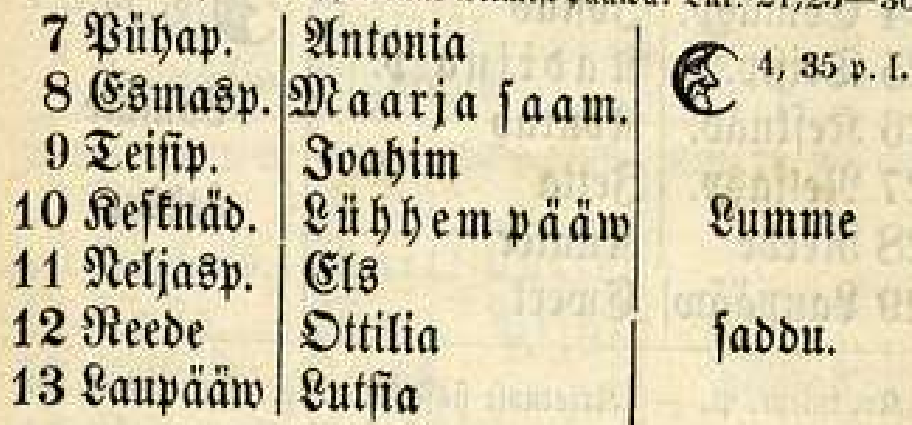 7 Pühap. Antonia 4, 35 p. l.
8 Esmasp. Maarja saam.
9 Teisip. Joahim
10 Kesknäd. Lühhem pääw Lumme
11 Neljasp. Els
12 Reede Ottilia saddu.
13 Laupääw Lutsia